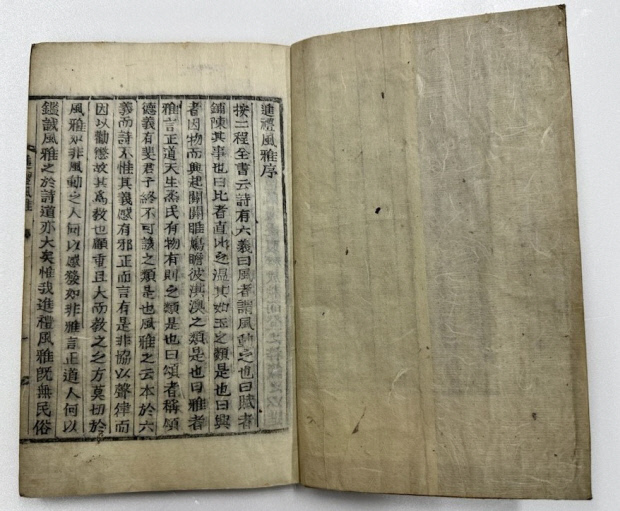 進禮風雅序
按二程全書云詩有六義曰風者謂風動之也曰賦者
鋪陳其事也曰比者直比之溫其如玉之類是也曰興
者因物而興起關關雎鳩瞻彼淇澳之類是也曰雅者
雅言正道天生烝民有物有則之類是也曰頌者稱頌
德義有斐君子終不可諼之類是也風雅之云本於六
義而詩不惟其義感有邪正而言有是非協以聲律而
因以勸懲故其爲敎也顧重且大而敎之之方莫切於
風雅如非風動之人何以感發如非雅言正道人何以
鑑誡風雅之於詩道亦大矣惟我進禮風雅旣無民俗